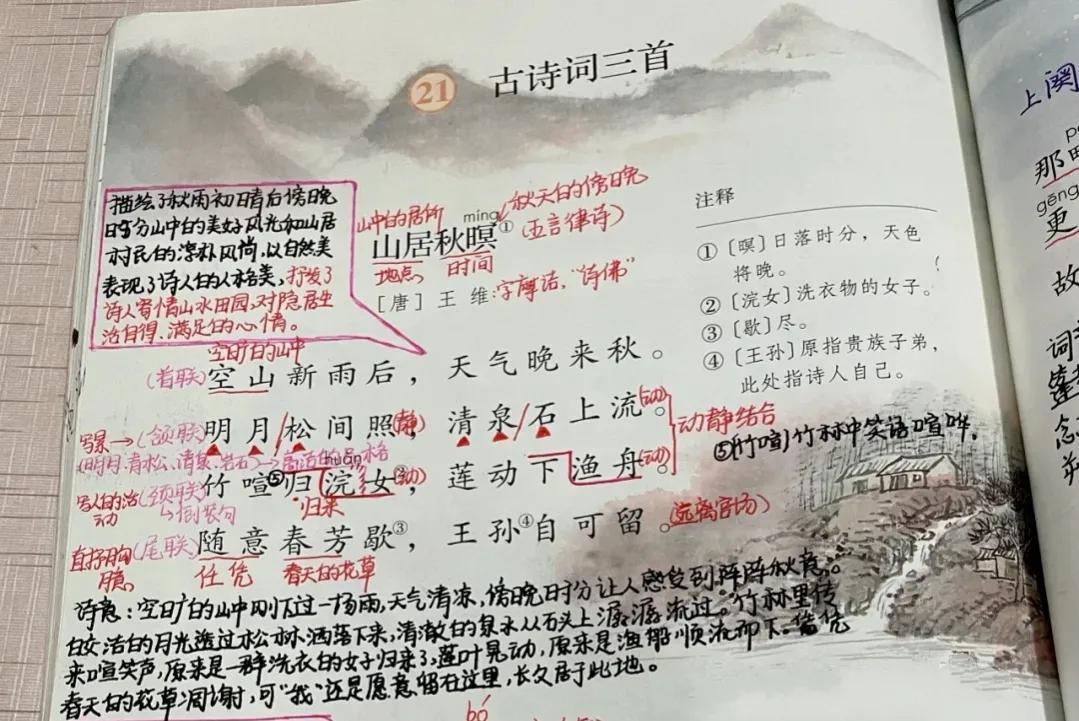 21 古诗词三首
描绘了秋雨初晴后傍晚
时分山中的美好风光和山居
村民的淳朴风尚,以自然美
表现了诗人的人格美,抒发了
诗人寄情山水田园,对隐居生
活自得、满足的心情。
山中的居所
míng
秋天的傍晚
山居秋暝①
(五言律诗)
地点 时间
[唐] 王 维:字摩诘,“诗佛”
注释
①〔暝〕日落时分,天色
将晚。
②〔浣女〕洗衣物的女子。
③〔歇〕尽。
④〔王孙〕原指贵族子弟,
此处指诗人自己。
空旷的山中
(首联)空山新雨后,天气晚来秋。
写景→(颔联)明月/松间照,(静)清泉/石上流。(动)
动静结合
(明月、青松、清泉、岩石)→高洁的品格
huàn
竹喧⑤归浣女,(动)莲动下渔舟。(动)
写人的活动
(颈联)
→倒装句
归来
⑤(竹喧)竹林中笑语喧哗。
直抒胸臆
(尾联)随意春芳歇③,王孙④自可留。(远离官场)
任凭 春天的花草
诗意:空旷的山中刚下过一场雨,天气清凉,傍晚时分让人感受到阵阵秋意。
皎洁的月光透过松林洒落下来,清澈的泉水从石头上潺潺流过。竹林里传
来喧笑声,原来是一群洗衣的女子归来了,莲叶晃动,原来是渔船顺流而下。任凭
春天的花草凋谢,可“我”还是愿意留在这里,长久居于此地。
bó
上阕
那
gēng
更
故
词
念